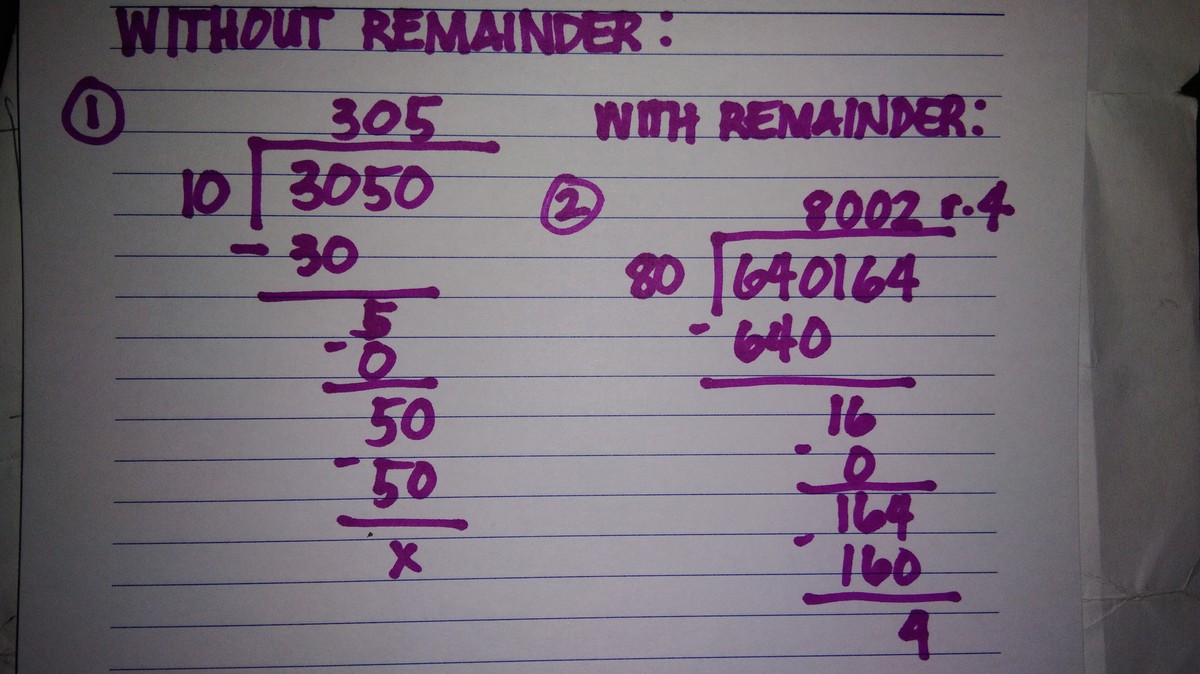 WITHOUT REMAINDER:
①
305
10 3050
- 30
5
- 0
50
- 50
x
WITH REMAINDER:
②
8002 r.4
80 640164
- 640
16
- 0
164
- 160
4